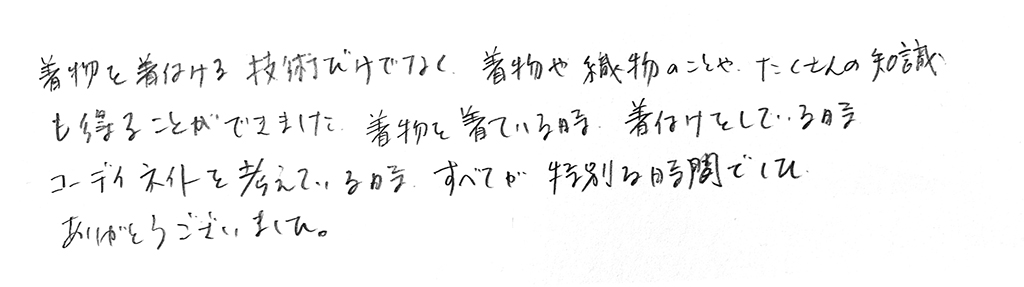 着物を着付ける技術だけでなく、着物や織物のことや、たくさんの知識
も得ることができました。着物を着ている時、着付けをしている時
コーディネイトを考えている時、すべてが特別な時間でした。
ありがとうございました。